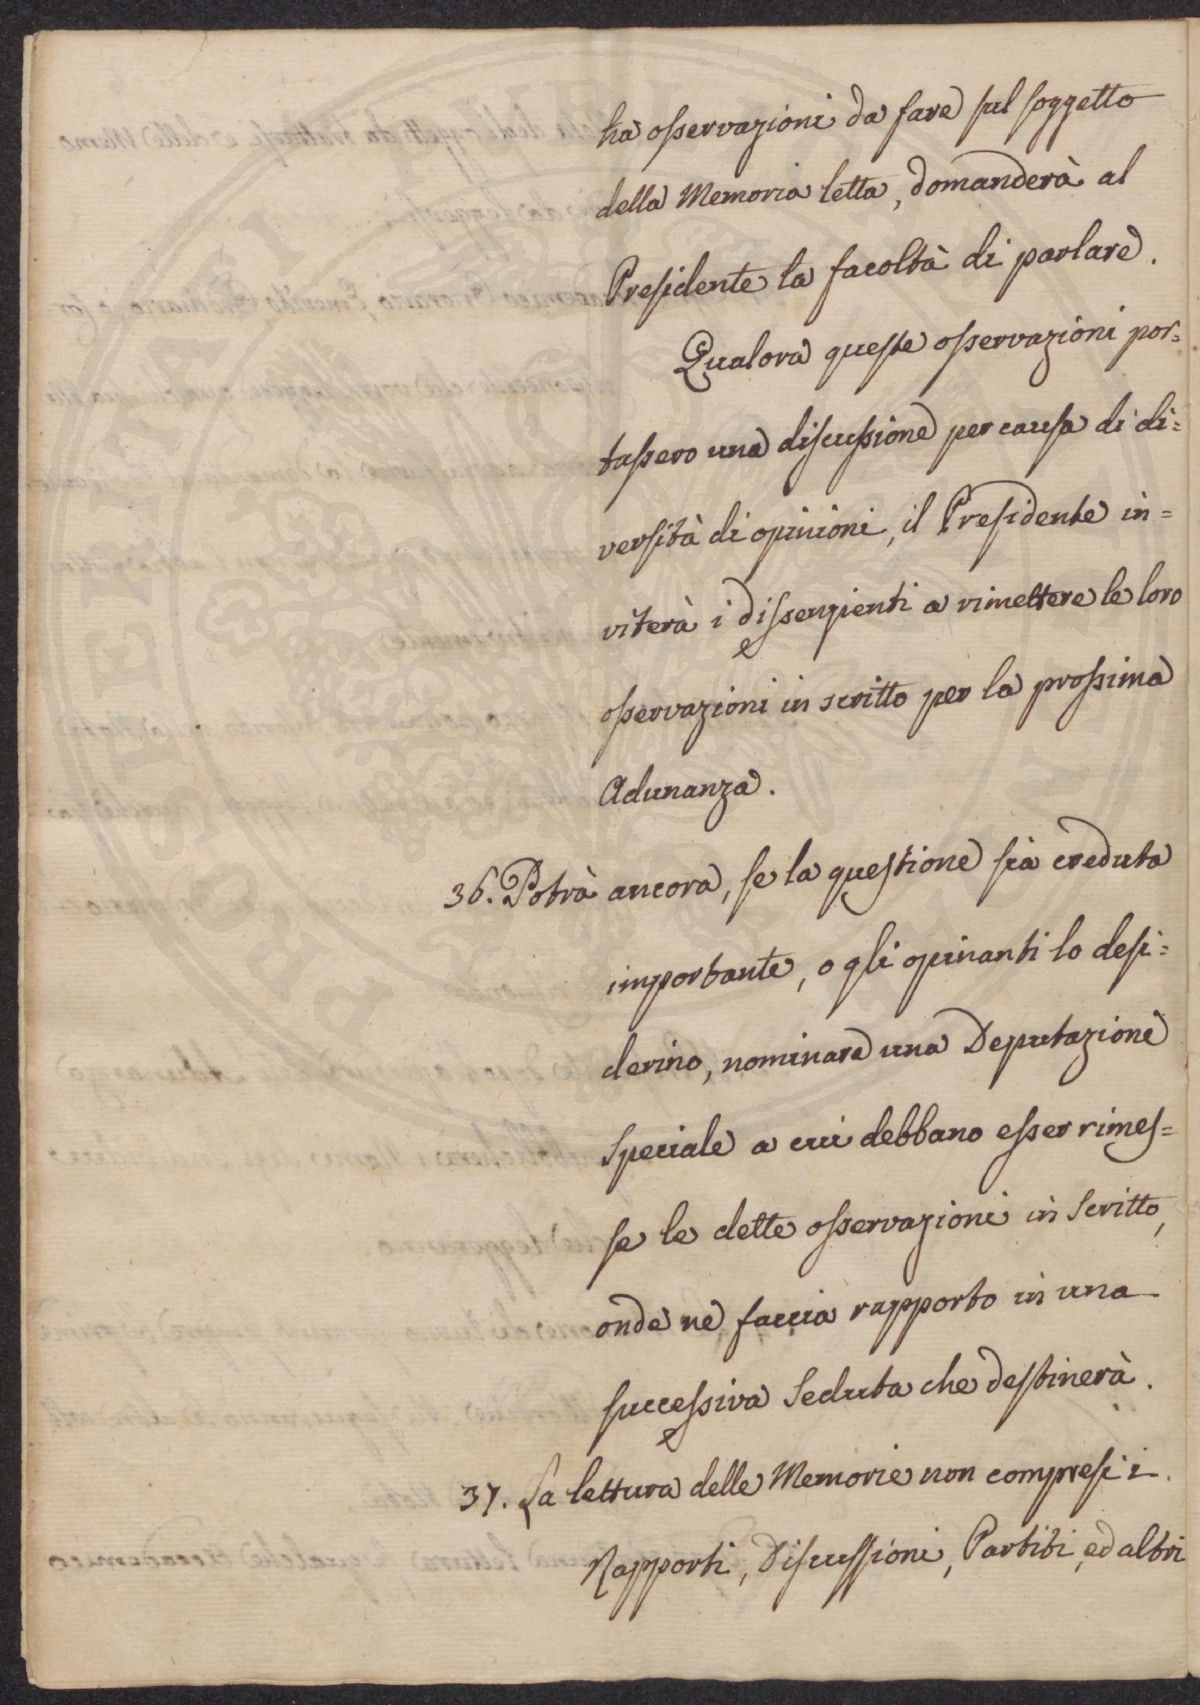 ha osservazioni da fare sul soggetto
della Memoria letta, domanderà al
Presidente la facoltà di parlare.
Qualora queste osservazioni por=
tassero una discussione per causa di di=
versità di opinioni, il Presidente in=
viterà i dissenzienti a rimettere le loro
osservazioni in scritto per la prossima
Adunanza.
36. Potrà ancora, se la questione sia creduta
importante, o gli opinanti lo desi=
derino, nominare una Deputazione
Speciale a cui debbano esser rimes=
se le dette osservazioni in Scritto,
onde ne faccia rapporto in una
successiva Seduta che destinerà.
37. La lettura delle Memorie non compresi i
Rapporti, Discussioni, Partiti, ed altri